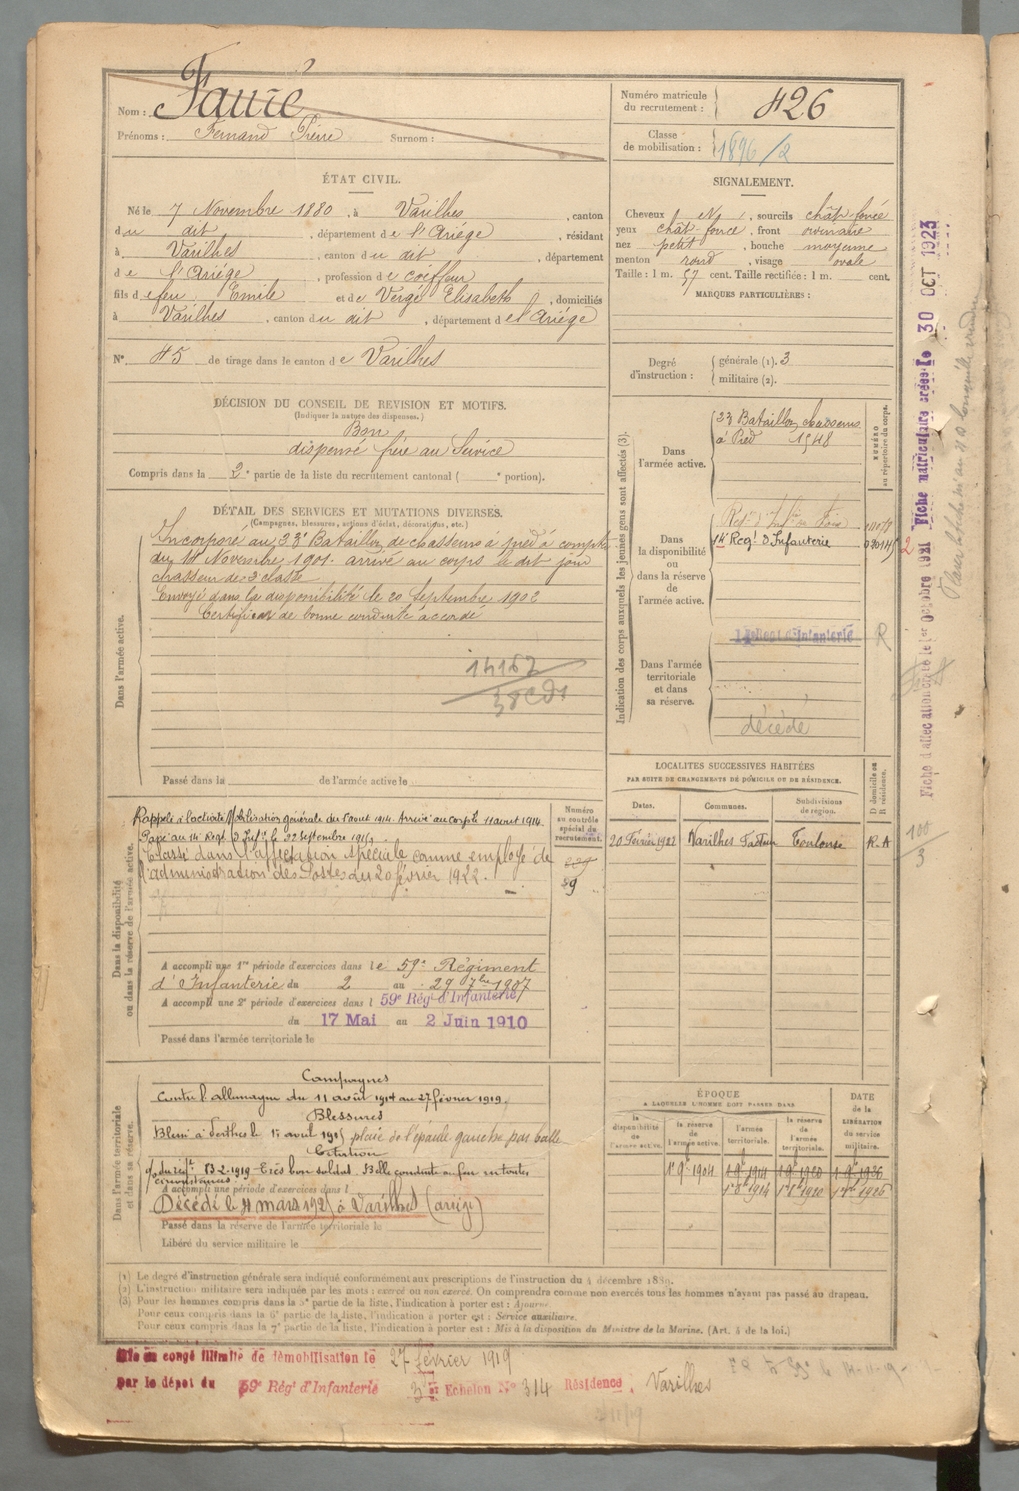 Nom : Faure
Prénoms : Fernand Pierre Surnom :
Numéro matricule du recrutement : 426
Classe de mobilisation : 1896/2
ÉTAT CIVIL.
Né le 7 Novembre 1880, à Varilhes, canton
du dit, département de l'Ariège, résidant
à Varilhes, canton du dit, département
de l'Ariège, profession de coiffeur
fils de feu Emile et de Vergé Elisabeth, domiciliés
à Varilhes, canton du dit, département de l'Ariège
N° 45 de tirage dans le canton de Varilhes
SIGNALEMENT.
Cheveux N, sourcils chât foncé
yeux chât foncé, front ordinaire
nez petit, bouche moyenne
menton rond, visage ovale
Taille : 1 m. 57 cent. Taille rectifiée : 1 m. cent.
MARQUES PARTICULIÈRES :
Degré d'instruction : générale (1). 3
militaire (2).
DÉCISION DU CONSEIL DE REVISION ET MOTIFS.
(Indiquer la nature des dispenses.)
Bon
dispensé frère au Service
Compris dans la 2e partie de la liste du recrutement cantonal ( e portion).
DÉTAIL DES SERVICES ET MUTATIONS DIVERSES.
(Campagnes, blessures, actions d'éclat, décorations, etc.)
Dans l'armée active.
Incorporé au 23e Bataillon de chasseurs à pied à compter
du 14 Novembre 1901. arrivé au corps le dit jour
chasseur de 2e classe
Envoyé dans la disponibilité le 20 Septembre 1902
Certificat de bonne conduite accordé
Passé dans la de l'armée active le
Indication des corps auxquels les jeunes gens sont affectés (3).
NUMÉRO au répertoire du corps.
Dans l'armée active.
23 Bataillon chasseurs
à Pied 1548
Dans la disponibilité ou dans la réserve de l'armée active.
14e Regt d'Infanterie
Dans l'armée territoriale et dans sa réserve.
décédé
R
LOCALITÉS SUCCESSIVES HABITÉES
PAR SUITE DE CHANGEMENTS DE DOMICILE OU DE RÉSIDENCE.
Dates. Communes. Subdivisions de région. D domicile ou R résidence.
20 Février 1922 Varilhes Facteur Toulouse R.A
Dans la disponibilité ou dans la réserve de l'armée active.
Numéro au contrôle spécial du recrutement.
Rappelé à l'activité Mobilisation générale du 1 aout 1914. Arrivé au corps le 11 aout 1914.
Passé au 14e Regt d'Inf. le 22 septembre 1915
Classé dans l'affectation spéciale comme employé de
l'administration des Postes du 20 février 1922.
A accompli une 1re période d'exercices dans le 59e Régiment
d'Infanterie du 2 au 29 7bre 1907
A accompli une 2e période d'exercices dans l 59e Rég't d'Infanterie
du 17 Mai au 2 Juin 1910
Passé dans l'armée territoriale le
Dans l'armée territoriale et dans sa réserve.
Campagnes
Contre l'allemagne du 11 août 1914 au 27 février 1919.
Blessures
Blessé à Perthes le avril 1915 plaie de l'épaule gauche par balle
Citation
du régt 13-2-1919 - Très bon soldat. Belle conduite au feu en toutes
circonstances.
A accompli une période d'exercices dans l
Décédé le mars 1925 à Varilhes (ariège)
Passé dans la réserve de l'armée territoriale le
Libéré du service militaire le
ÉPOQUE
A LAQUELLE L'HOMME DOIT PASSER DANS
DATE DE LA LIBÉRATION DU service militaire.
la disponibilité de l'armée active. la réserve de l'armée active. l'armée territoriale. la réserve de l'armée territoriale.
1er 9e 1904 1er 9e 1914 1er 9e 1920 1er 9e 1926
(1) Le degré d'instruction générale sera indiqué conformément aux prescriptions de l'instruction du 4 décembre 1889.
(2) L'instruction militaire sera indiquée par les mots : exercé ou non exercé. On comprendra comme non exercés tous les hommes n'ayant pas passé au drapeau.
(3) Pour les hommes compris dans la 5e partie de la liste, l'indication à porter est : Ajourné.
Pour ceux compris dans la 6e partie de la liste, l'indication à porter est : Service auxiliaire.
Pour ceux compris dans la 7e partie de la liste, l'indication à porter est : Mis à la disposition du Ministre de la Marine. (Art. 4 de la loi.)
Mis en congé illimité de démobilisation le 27 février 1919
par le dépot du 59e Rég't d'Infanterie 3e Echelon N° 314 Résidence : Varilhes
Fiche d'affectation créée le 1er Octobre 1921 Fiche matriculaire créée le 30 OCT 1923
100
3